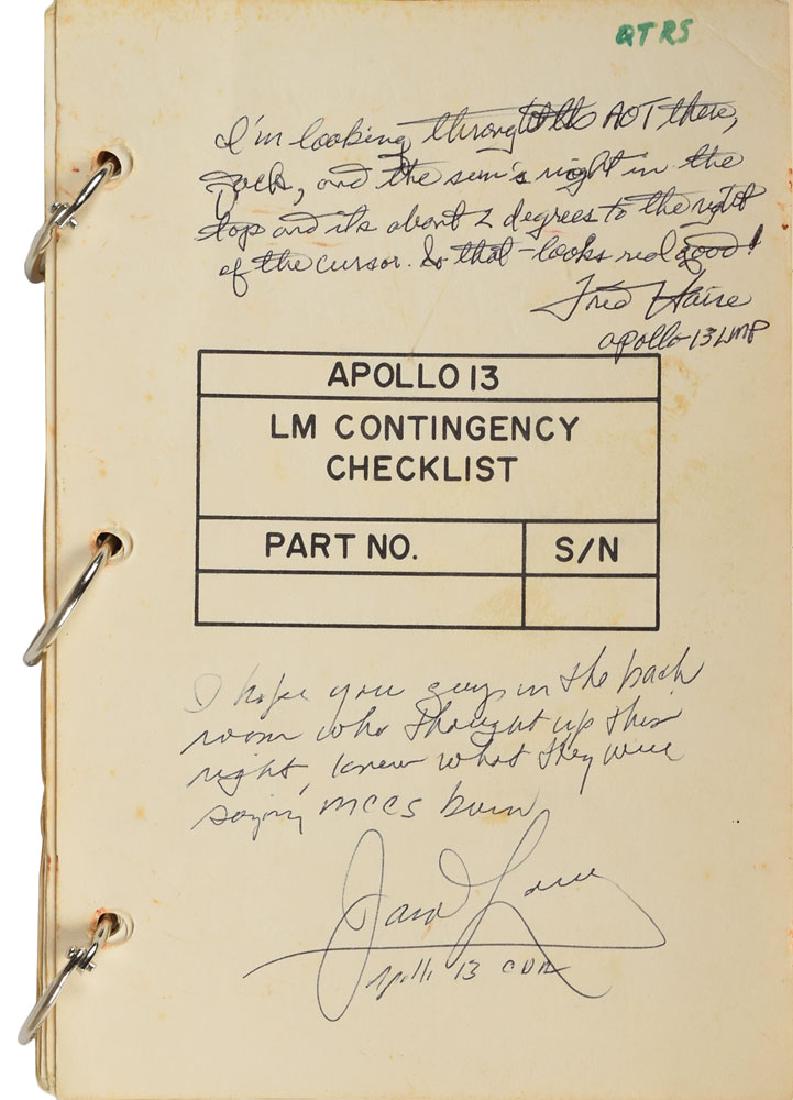 QTRS
I'm looking through the AOT there,
Jack, and the sun's right in the
top and its about 2 degrees to the right
of the cursor. So that - looks real good!
Fred Haise
Apollo 13 LMP
APOLLO 13
LM CONTINGENCY
CHECKLIST
PART NO.
S/N
I hope you guys in the back
room who thought up this
right, knew what they were
saying MCC5 burn
James Lovell
Apollo 13 CDR